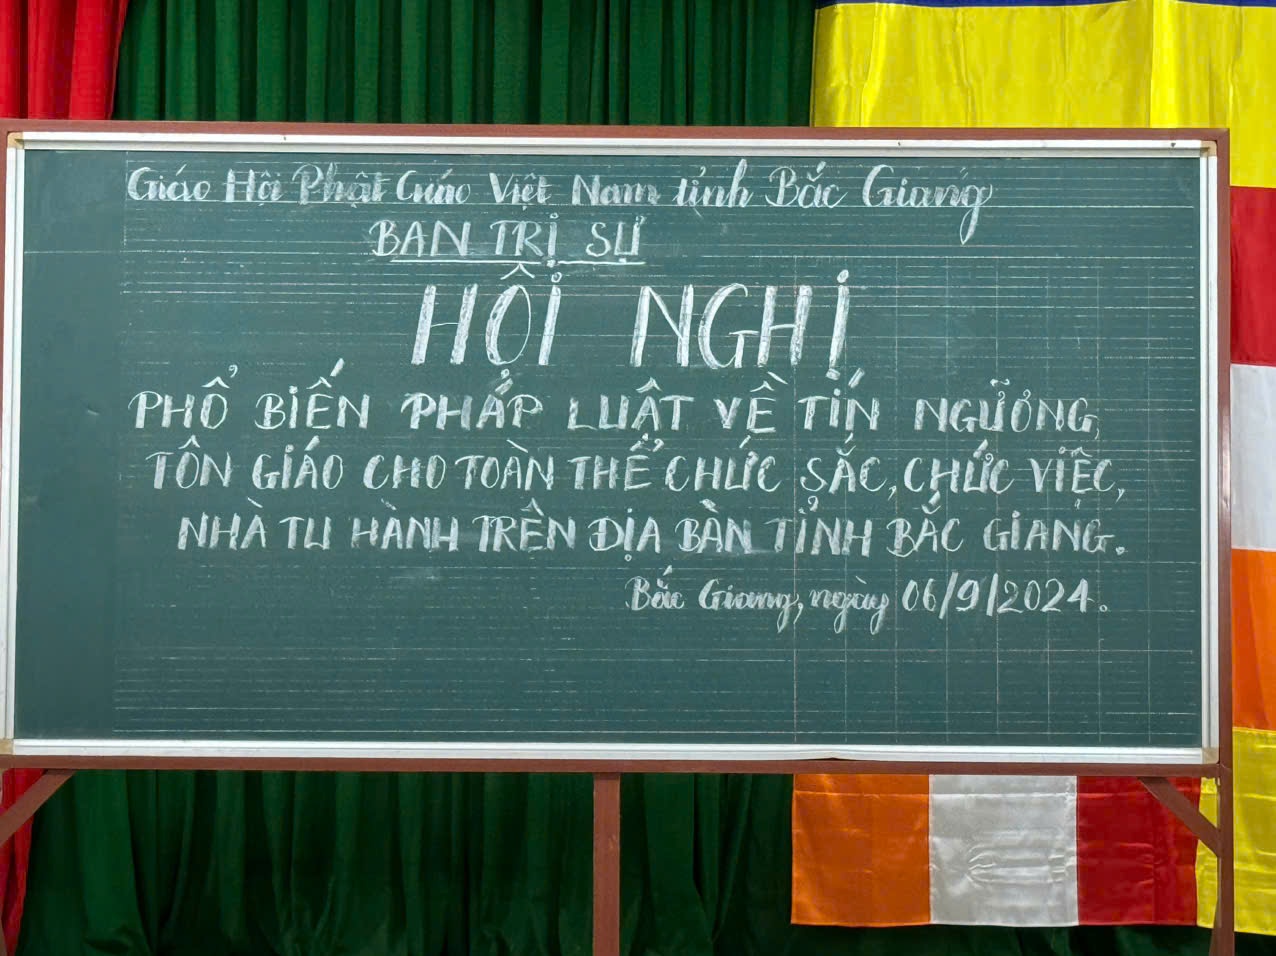 Giáo Hội Phật Giáo Việt Nam tỉnh Bắc Giang
BAN TRỊ SỰ
HỘI NGHỊ
PHỔ BIẾN PHÁP LUẬT VỀ TÍN NGƯỠNG,
TÔN GIÁO CHO TOÀN THỂ CHỨC SẮC, CHỨC VIỆC,
NHÀ TU HÀNH TRÊN ĐỊA BÀN TỈNH BẮC GIANG.
Bắc Giang, ngày 06/9/2024.